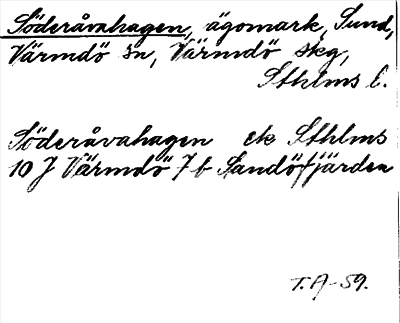 Söderåvahagen, ägomark, Sund,
Värmdö sn, Värmdö skg,
Sthlms l.
Söderåvahagen ek Sthlms
10 J Värmdö 7 b Sandöfjärden
T.A-59.